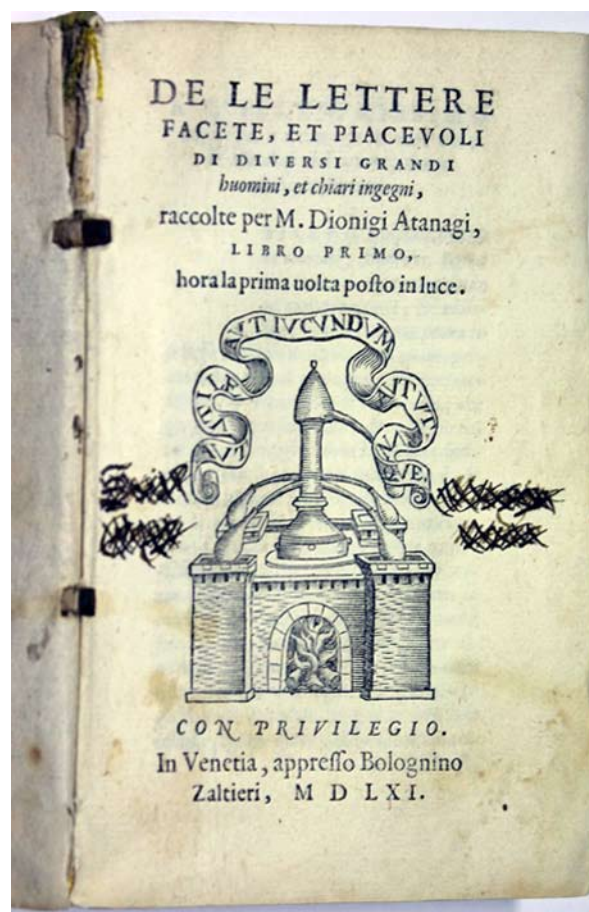 DE LE LETTERE
FACETE, ET PIACEVOLI
DI DIVERSI GRANDI
huomini, et chiari ingegni,
raccolte per M. Dionigi Atanagi,
LIBRO PRIMO,
hora la prima uolta poſto in luce.
AVT VTILE AVT IVCVNDVM AVT VTRVNQVE
CON PRIVILEGIO.
In Venetia, appreſſo Bolognino
Zaltieri, M D LXI.